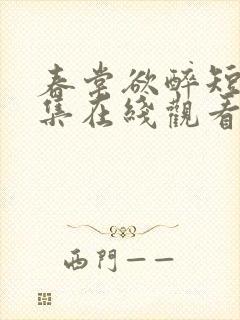 春堂欲醉短
集在綫觀看
西門一一